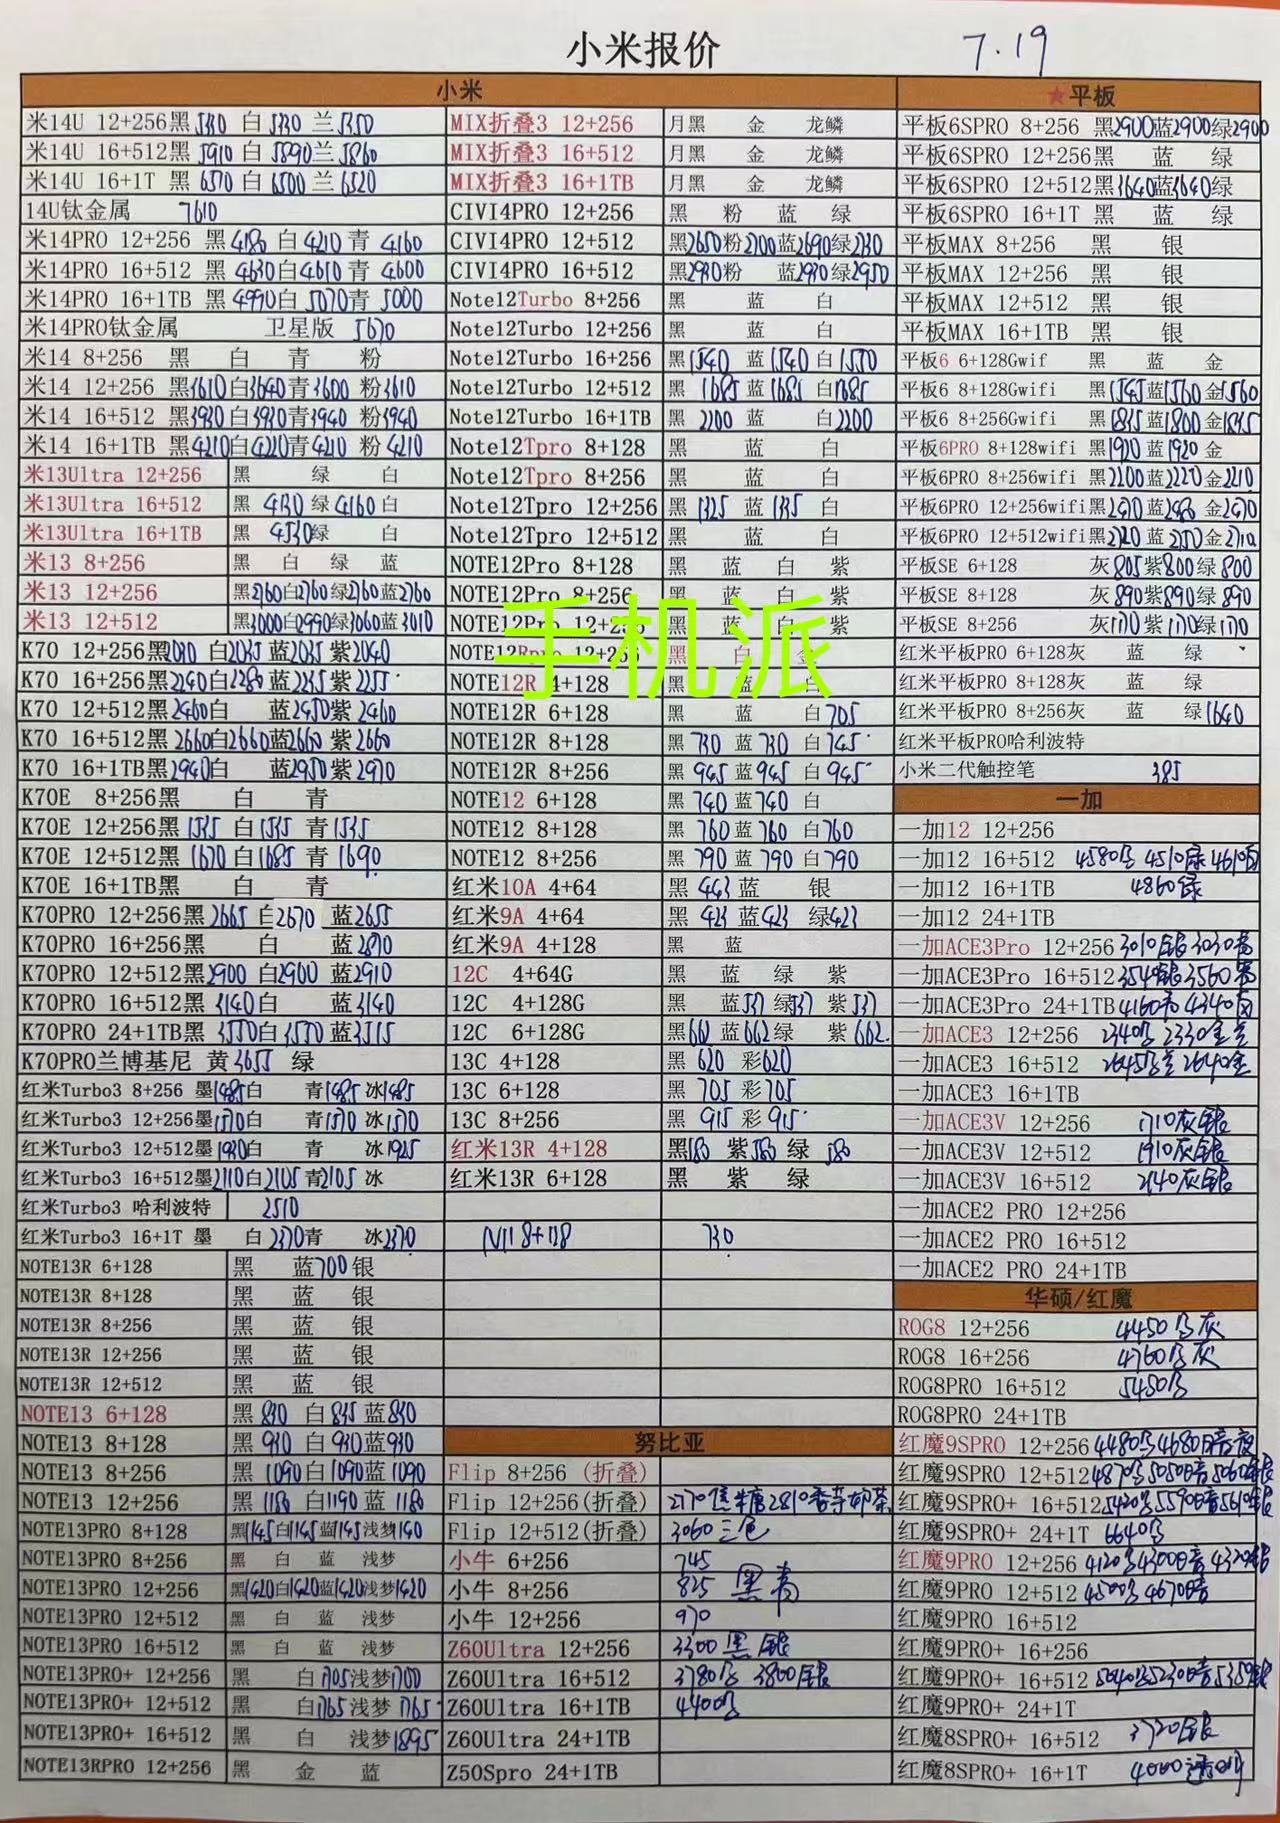 小米报价 7.19
小米
米14U 12+256黑 白 兰5350
米14U 16+512黑5910 白5890兰5860
米14U 16+1T 黑6570 白6500 兰6520
14U钛金属 7610
米14PRO 12+256 黑4180 白4210 青4160
米14PRO 16+512 黑4630白4610 青4600
米14PRO 16+1TB 黑4990白5070青5000
米14PRO钛金属 卫星版 5670
米14 8+256 黑 白 青 粉
米14 12+256 黑3610白3640青3600 粉3610
米14 16+512 黑3930白3930青3940 粉3940
米14 16+1TB 黑4210白4220青4210 粉4210
米13Ultra 12+256 黑 绿 白
米13Ultra 16+512 黑 4130 绿4160白
米13Ultra 16+1TB 黑 4530绿 白
米13 8+256 黑 白 绿 蓝
米13 12+256 黑2760白2760绿2760蓝2760
米13 12+512 黑3000白2990绿3060蓝3010
K70 12+256黑2030 白2035 蓝2035 紫2040
K70 16+256黑2240白2280蓝2245紫2255
K70 12+512黑2460白 蓝2450紫2460
K70 16+512黑2660白2660蓝2660 紫2660
K70 16+1TB黑2940白 蓝2950紫2970
K70E 8+256黑 白 青
K70E 12+256黑1535 白1535 青1535
K70E 12+512黑1670白1685 青1690
K70E 16+1TB黑 白 青
K70PRO 12+256黑2665 白2670 蓝2655
K70PRO 16+256黑 白 蓝2870
K70PRO 12+512黑2900 白2900 蓝2910
K70PRO 16+512黑3140白 蓝3140
K70PRO 24+1TB黑3550白3550蓝3515
K70PRO兰博基尼 黄3655 绿
红米Turbo3 8+256 墨1485白 青1485 冰1485
红米Turbo3 12+256墨1570白 青1570 冰1570
红米Turbo3 12+512墨1930白 青 冰1925
红米Turbo3 16+512墨2110白2105青2105 冰
红米Turbo3 哈利波特 2510
红米Turbo3 16+1T 墨 白2370青 冰2370
NOTE13R 6+128 黑 蓝700银
NOTE13R 8+128 黑 蓝 银
NOTE13R 8+256 黑 蓝 银
NOTE13R 12+256 黑 蓝 银
NOTE13R 12+512 黑 蓝 银
NOTE13 6+128 黑830 白835蓝830
NOTE13 8+128 黑930 白930蓝930
NOTE13 8+256 黑1090白1090蓝1090
NOTE13 12+256 黑1180 白1190 蓝1180
NOTE13PRO 8+128 黑1145白1145蓝1145浅梦1140
NOTE13PRO 8+256 黑 白 蓝 浅梦
NOTE13PRO 12+256 黑1420白1420蓝1420浅梦1420
NOTE13PRO 12+512 黑 白 蓝 浅梦
NOTE13PRO 16+512 黑 白 蓝 浅梦
NOTE13PRO+ 12+256 黑 白1705浅梦1700
NOTE13PRO+ 12+512 黑 白1765浅梦1765
NOTE13PRO+ 16+512 黑 白 浅梦1895
NOTE13RPRO 12+256 黑 金 蓝
MIX折叠3 12+256 月黑 金 龙鳞
MIX折叠3 16+512 月黑 金 龙鳞
MIX折叠3 16+1TB 月黑 金 龙鳞
CIVI4PRO 12+256 黑 粉 蓝 绿
CIVI4PRO 12+512 黑2650粉2700蓝2690绿2730
CIVI4PRO 16+512 黑2930粉 蓝2930绿2950
Note12Turbo 8+256 黑 蓝 白
Note12Turbo 12+256 黑 蓝 白
Note12Turbo 16+256 黑1540 蓝1540白1550
Note12Turbo 12+512 黑 1685蓝1685 白1685
Note12Turbo 16+1TB 黑2200 蓝 白2200
Note12Tpro 8+128 黑 蓝 白
Note12Tpro 8+256 黑 蓝 白
Note12Tpro 12+256 黑1325 蓝1335 白
Note12Tpro 12+512 黑 蓝 白
NOTE12Pro 8+128 黑 蓝 白 紫
NOTE12Pro 8+256 黑 蓝 白 紫
NOTE12Pro 12+256 黑 蓝 白 紫
NOTE12Rpro 12+256 黑 白 金
手机派
NOTE12R 4+128 黑 蓝 白
NOTE12R 6+128 黑 蓝 白705
NOTE12R 8+128 黑730 蓝730 白745
NOTE12R 8+256 黑945蓝945 白945
NOTE12 6+128 黑740蓝740 白
NOTE12 8+128 黑760蓝760 白760
NOTE12 8+256 黑790蓝790白790
红米10A 4+64 黑443蓝 银
红米9A 4+64 黑423蓝423 绿423
红米9A 4+128 黑 蓝
12C 4+64G 黑 蓝 绿 紫
12C 4+128G 黑 蓝537绿537 紫537
12C 6+128G 黑662蓝662绿 紫662
13C 4+128 黑620 彩620
13C 6+128 黑705彩705
13C 8+256 黑915彩915
红米13R 4+128 黑580 紫580绿580
红米13R 6+128 黑 紫 绿
N11 8+128 730
努比亚
Flip 8+256 (折叠)
Flip 12+256(折叠)
Flip 12+512(折叠) 3060三色
小牛 6+256 745
小牛 8+256 825 黑青
小牛 12+256 970
Z60Ultra 12+256 3300黑银
Z60Ultra 16+512 3780 3800银
Z60Ultra 16+1TB 4400
Z60Ultra 24+1TB
Z50Spro 24+1TB
★平板
平板6SPRO 8+256 黑2900蓝2900绿2900
平板6SPRO 12+256黑 蓝 绿
平板6SPRO 12+512黑3640蓝3640绿
平板6SPRO 16+1T 黑 蓝 绿
平板MAX 8+256 黑 银
平板MAX 12+256 黑 银
平板MAX 12+512 黑 银
平板MAX 16+1TB 黑 银
平板6 6+128Gwif 黑 蓝 金
平板6 8+128Gwifi 黑1545蓝1560金1560
平板6 8+256Gwifi 黑1835蓝1800金1835
平板6PRO 8+128wifi 黑1920蓝1920 金
平板6PRO 8+256wifi 黑2200蓝2220金2210
平板6PRO 12+256wifi黑2470蓝2480 金2470
平板6PRO 12+512wifi黑2720 蓝 金2710
平板SE 6+128 灰805紫800绿800
平板SE 8+128 灰890紫890绿890
平板SE 8+256 灰1170紫1170绿1170
红米平板PRO 6+128灰 蓝 绿
红米平板PRO 8+128灰 蓝 绿
红米平板PRO 8+256灰 蓝 绿1640
红米平板PRO哈利波特
小米二代触控笔 385
一加
一加12 12+256
一加12 16+512 4580 4510绿4610白
一加12 16+1TB 4860绿
一加12 24+1TB
一加ACE3Pro 12+256 3010银3030
一加ACE3Pro 16+512 3540银3560
一加ACE3Pro 24+1TB 4160 4340
一加ACE3 12+256 2340 2330金
一加ACE3 16+512 2645 2640金
一加ACE3 16+1TB
一加ACE3V 12+256 1710灰银
一加ACE3V 12+512 1910灰银
一加ACE3V 16+512 2140灰银
一加ACE2 PRO 12+256
一加ACE2 PRO 16+512
一加ACE2 PRO 24+1TB
华硕/红魔
ROG8 12+256 4450 灰
ROG8 16+256 4760 灰
ROG8PRO 16+512 5450
ROG8PRO 24+1TB
红魔9SPRO 12+256 4480 4680
红魔9SPRO 12+512 4870 5050
红魔9SPRO+ 16+512 5420 5590
红魔9SPRO+ 24+1T 6640
红魔9PRO 12+256 4120 4300
红魔9PRO 12+512 4500 4670
红魔9PRO 16+512
红魔9PRO+ 16+256
红魔9PRO+ 16+512 5040 5230
红魔9PRO+ 24+1T
红魔8SPRO+ 16+512 3720银
红魔8SPRO+ 16+1T 4000